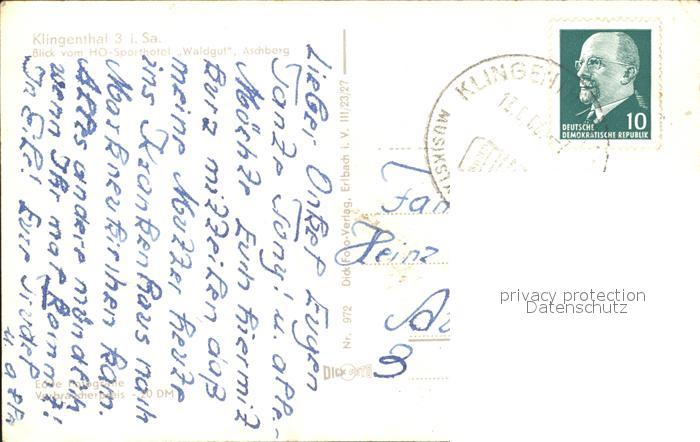 Klingenthal 3 i. Sa.
Blick vom HO-Sporthotel „Waldgut", Aschberg
Lieber Onkel Eugen
Tante Tony! u. alle-
Möchte Euch hiermit
kurz mitteilen, daß
meine Mutter heute
ins Krankenhaus nach
Markneukirchen kam.
Alles andere mündlich
wenn Ihr mal kommt!
In Eile! Eure
u. a
Echte Fotografie
Verbraucherpreis -,20 DM
Nr. 972 Dick Foto-Verlag, Erlbach i. V. III/23/27
DICK
KLINGEN
MUSIKS
DEUTSCHE
DEMOKRATISCHE REPUBLIK
10
Fam
Heinz
8
privacy protection
Datenschutz